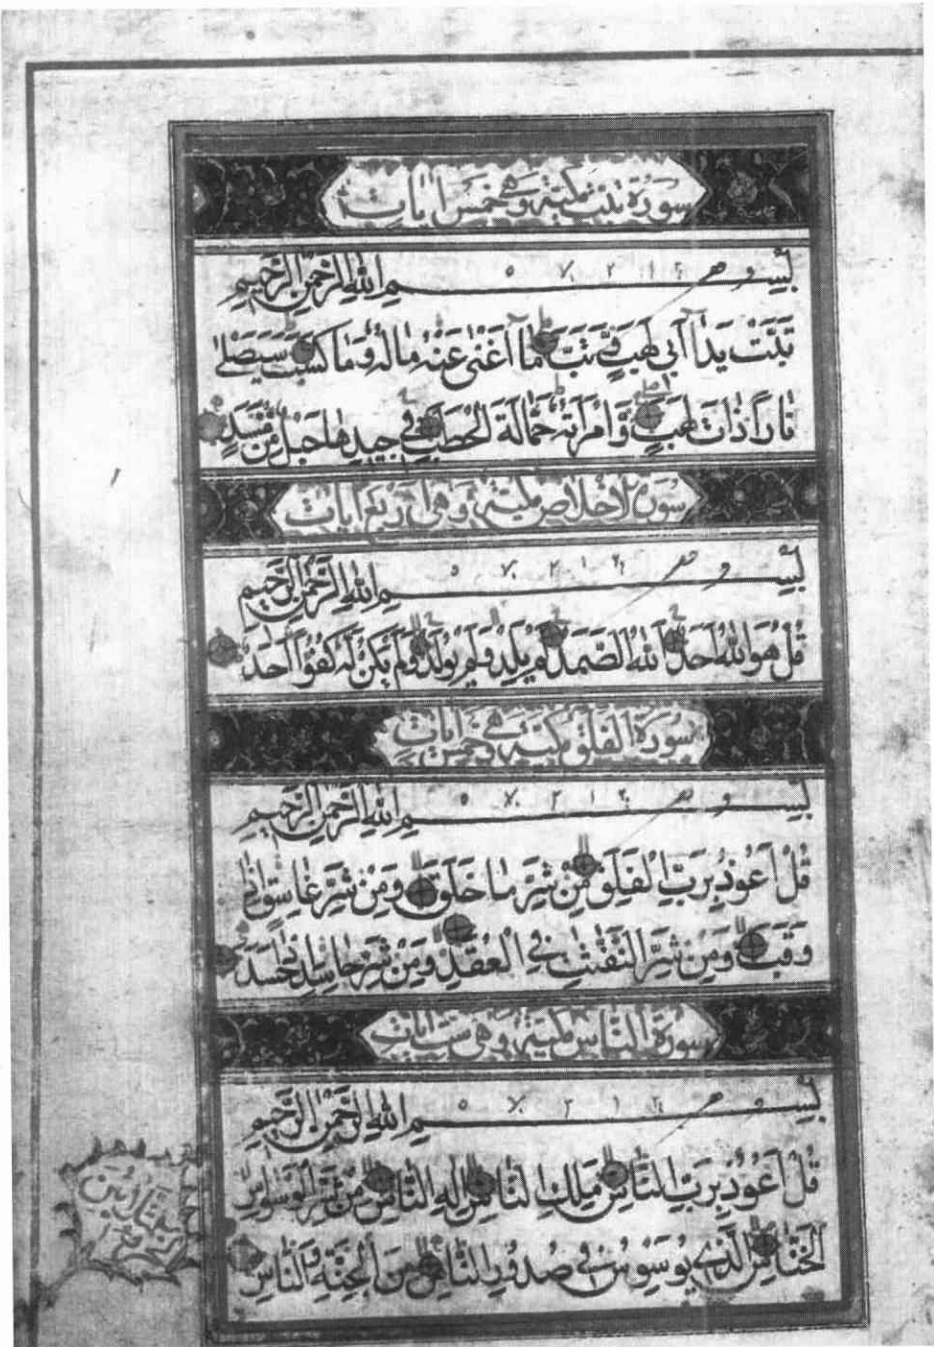 سورة تبت مكية وهي خمس ايات
بِسْمِ اللهِ الرَّحْمٰنِ الرَّحِيمِ
تَبَّتْ يَدَآ اَبِي لَهَبٍ وَّتَبَّ مَآ اَغْنٰى عَنْهُ مَالُهُ وَمَا كَسَبَ سَيَصْلٰى
نَارًا ذَاتَ لَهَبٍ وَّامْرَاَتُهُ حَمَّالَةَ الْحَطَبِ فِي جِيدِهَا حَبْلٌ مِّنْ مَّسَدٍ
سورة الاخلاص مكية وهي اربع ايات
بِسْمِ اللهِ الرَّحْمٰنِ الرَّحِيمِ
قُلْ هُوَ اللهُ اَحَدٌ اَللهُ الصَّمَدُ لَمْ يَلِدْ وَلَمْ يُولَدْ وَلَمْ يَكُنْ لَهُ كُفُوًا اَحَدٌ
سورة الفلق مكية وهي خمس ايات
بِسْمِ اللهِ الرَّحْمٰنِ الرَّحِيمِ
قُلْ اَعُوذُ بِرَبِّ الْفَلَقِ مِنْ شَرِّ مَا خَلَقَ وَمِنْ شَرِّ غَاسِقٍ اِذَا
وَقَبَ وَمِنْ شَرِّ النَّفّٰثٰتِ فِي الْعُقَدِ وَمِنْ شَرِّ حَاسِدٍ اِذَا حَسَدَ
سورة الناس مكية وهي ست ايات
بِسْمِ اللهِ الرَّحْمٰنِ الرَّحِيمِ
قُلْ اَعُوذُ بِرَبِّ النَّاسِ مَلِكِ النَّاسِ اِلٰهِ النَّاسِ مِنْ شَرِّ الْوَسْوَاسِ
الْخَنَّاسِ الَّذِي يُوَسْوِسُ فِي صُدُورِ النَّاسِ مِنَ الْجِنَّةِ وَالنَّاسِ